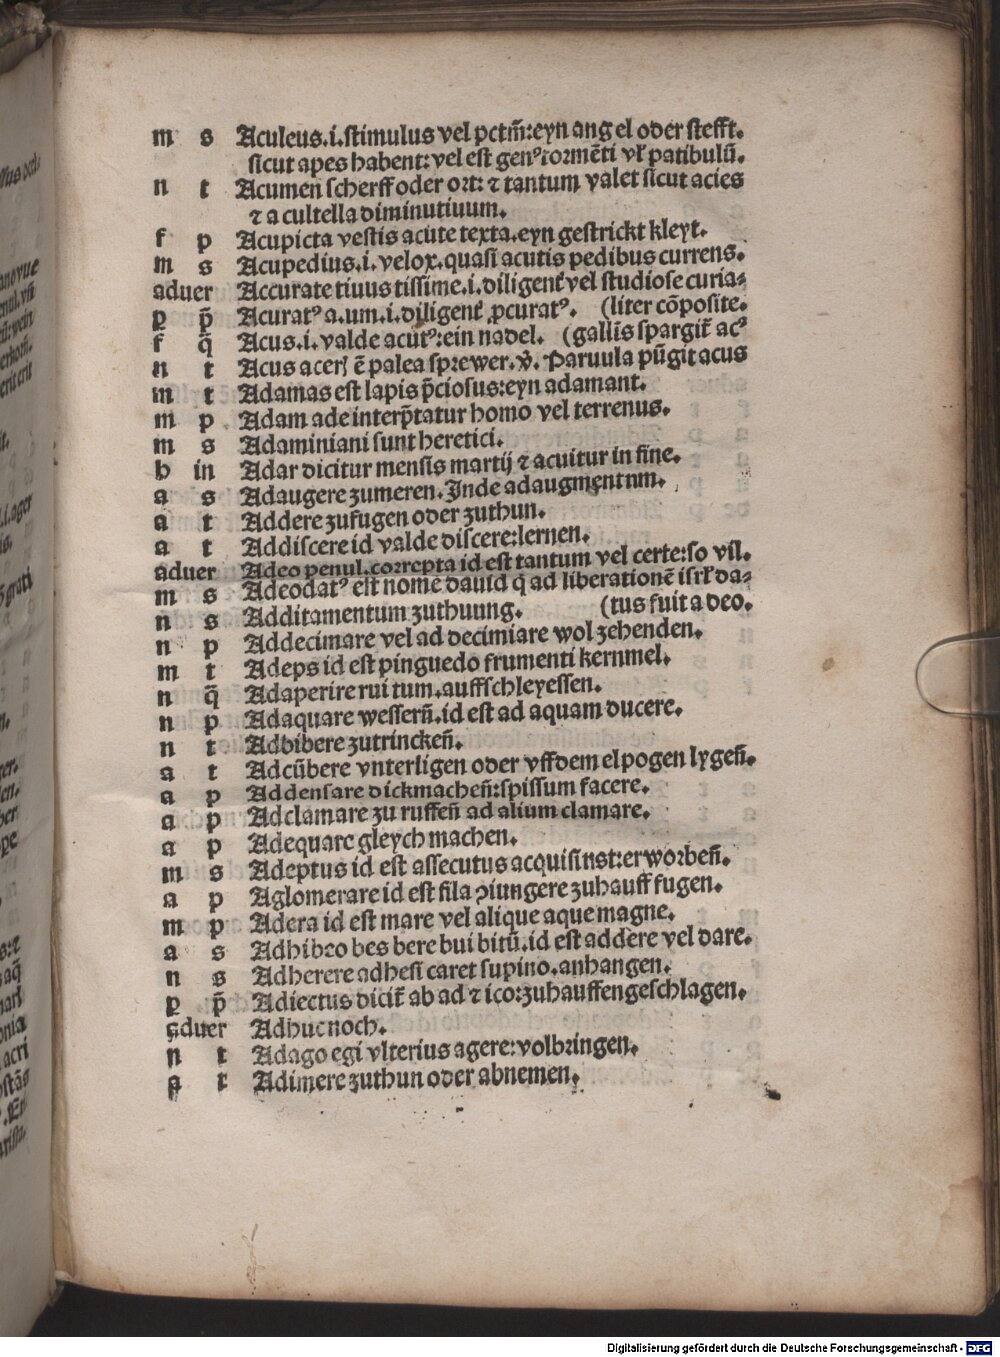 m s Aculeus.i.stimulus vel pctm̄:eyn angel oder stefft.
sicut apes habent:vel est genꝰ tormēti vl̓ patibulū.
n t Acumen scherff oder ort: ⁊ tantum valet sicut acies
⁊ a cultella diminutiuum.
f p Acupicta vestis acute texta.eyn gestrickt kleyt.
m s Acupedius.i.velox.quasi acutis pedibus currens.
aduer Accurate tiuus tissime.i.diligent̓ vel studiose curia⸗
p p̄ Acuratꝰ a.um.i.diligent̓ ꝓcuratꝰ. (liter cōposite.
f q̄ Acus.i.valde acutꝰ:ein nadel. (gallis spargit̓ acꝰ
n t Acus aceris ē palea sprewer.v̓. Paruula pūgit acus
m t Adamas est lapis p̄ciosus:eyn adamant.
m p Adam ade interp̄tatur homo vel terrenus.
m s Adaminiani sunt heretici.
h in Adar dicitur mensis martij ⁊ acuitur in fine.
a s Adaugere zumeren.Inde adaugmentum.
a t Addere zufugen oder zuthun.
a t Addiscere id valde discere:lernen.
aduer Adeo penul.correpta id est tantum vel certe:so vil.
m s Adeodatꝰ est nomē dauid q̄ ad liberationē isrl̓ da⸗
n s Additamentum zuthuung. (tus fuit a deo.
n p Addecimare vel ad decimiare wol zehenden.
m t Adeps id est pinguedo frumenti kernmel.
n q̄ Adaperire rui tum.auffschleyessen.
n p Adaquare wessern̄.id est ad aquam ducere.
n t Adbibere zutrincken̄.
a t Adcūbere vnterligen oder vffdem elpogen lygen̄.
a p Addensare dickmachen̄:spissum facere.
a p Adclamare zu ruffen̄ ad alium clamare.
a p Adequare gleych machen.
m s Adeptus id est assecutus acquisinst:erworben̄.
a p Aglomerare id est fila ꝯiungere zuhauff fugen.
m p Adera id est mare vel alique aque magne.
a s Adhibro bes bere bui bitū.id est addere vel dare.
n s Adherere adhesi caret supino.anhangen.
p p̄ Adiectus dicit̓ ab ad ⁊ ico:zuhauffengeschlagen.
aduer Adhuc noch.
n t Adago egi vlterius agere:volbringen.
a t Adimere zuthun oder abnemen.
Digitalisierung gefördert durch die Deutsche Forschungsgemeinschaft - DFG